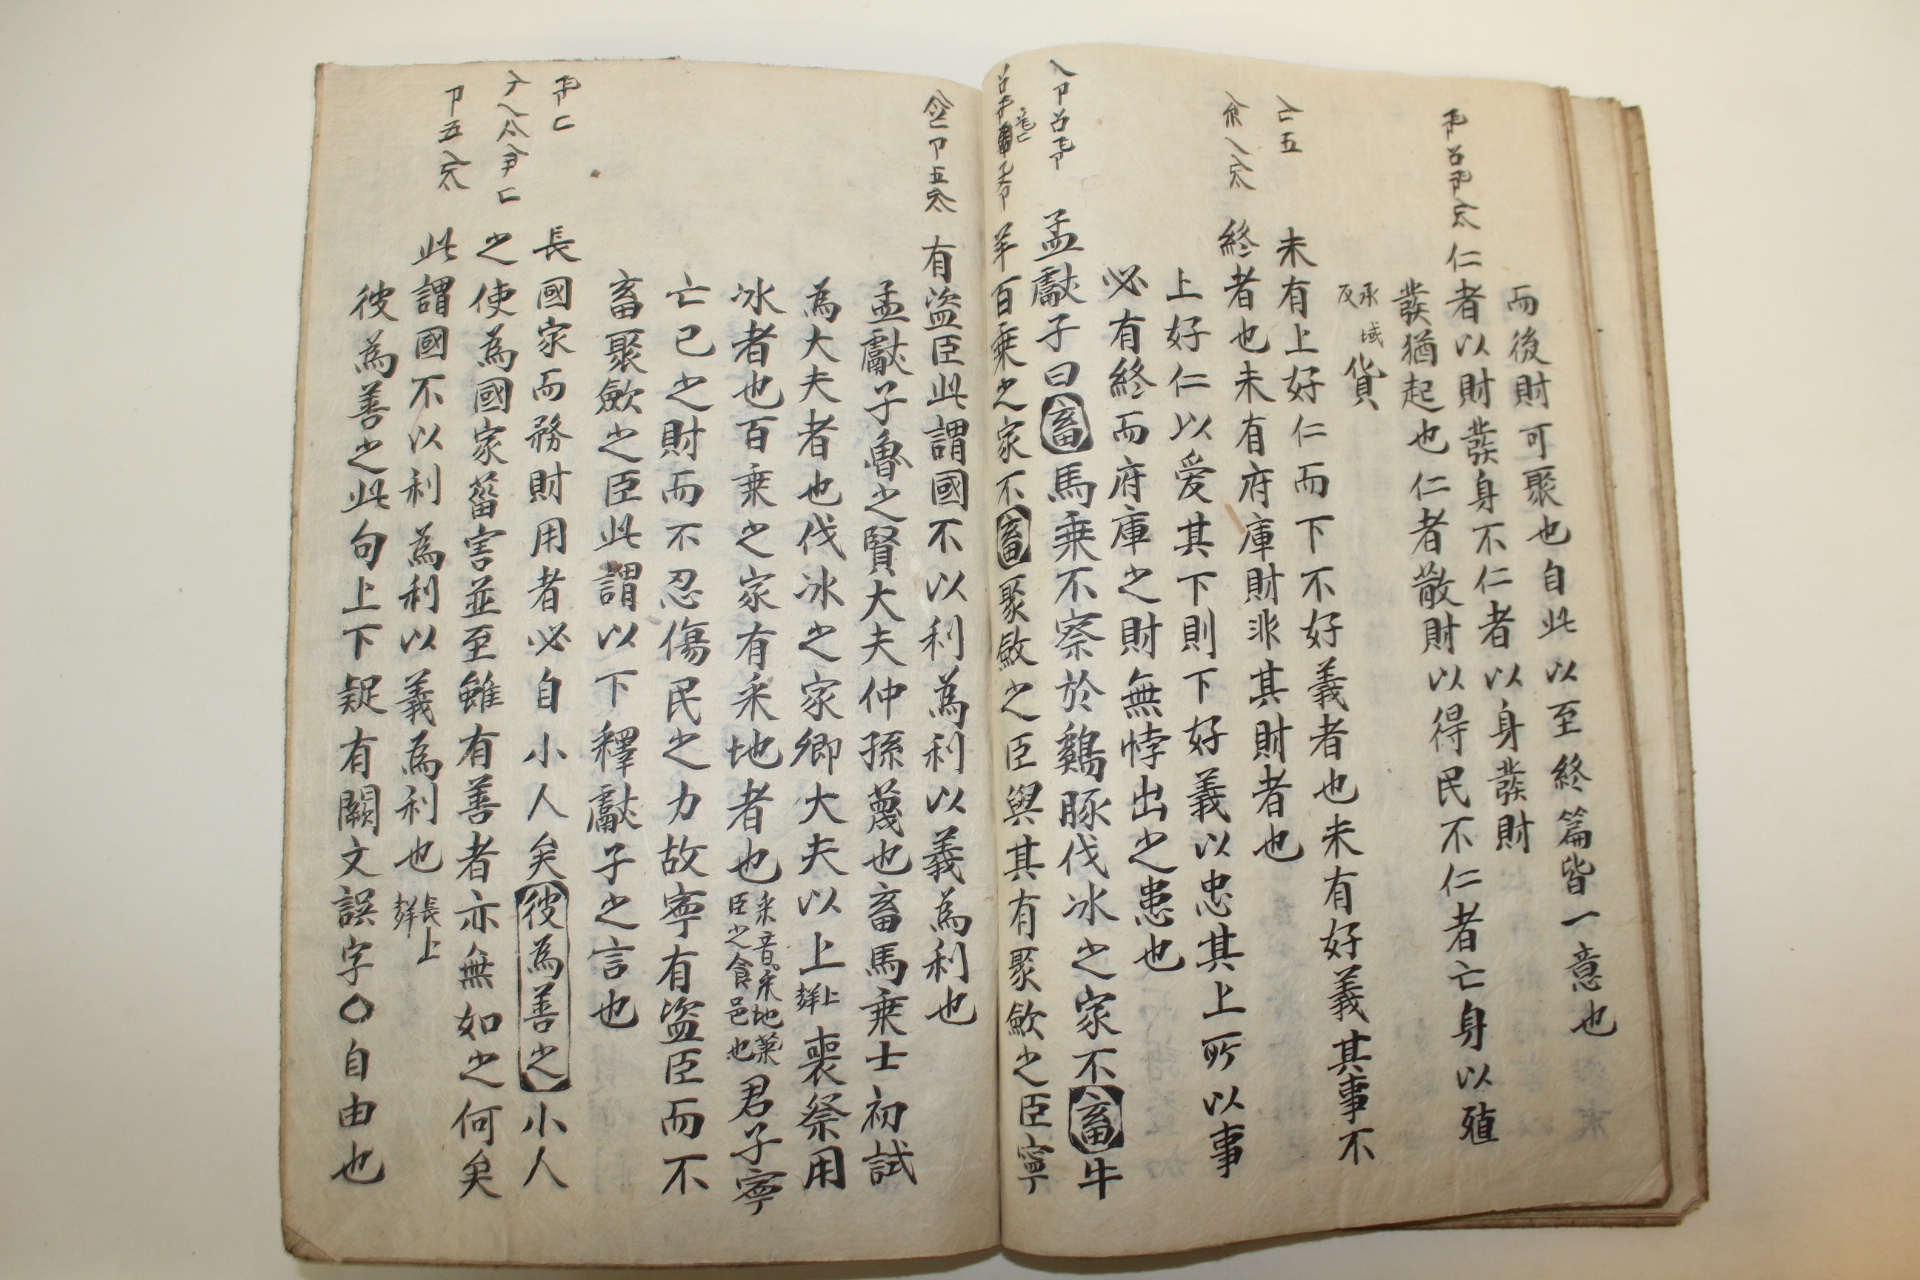 而後財可聚也自此以至終篇皆一意也
仁者以財發身不仁者以身發財
發猶起也仁者散財以得民不仁者亡身以殖
貨
承域
反
未有上好仁而下不好義者也未有好義其事不
終者也未有府庫財非其財者也
上好仁以愛其下則下好義以忠其上所以事
必有終而府庫之財無悖出之患也
孟獻子曰畜馬乘不察於鷄豚伐冰之家不畜牛
羊百乘之家不畜聚斂之臣與其有聚斂之臣寧
有盜臣此謂國不以利為利以義為利也
孟獻子魯之賢大夫仲孫蔑也畜馬乘士初試
為大夫者也伐冰之家卿大夫以上喪祭用
上
冰者也百乘之家有采地者也君子寧
采音菜地
臣之食邑也
亡已之財而不忍傷民之力故寧有盜臣而不
畜聚斂之臣此謂以下釋獻子之言也
長國家而務財用者必自小人矣彼為善之小人
之使為國家菑害並至雖有善者亦無如之何矣
此謂國不以利為利以義為利也
長上
彼為善之此句上下疑有闕文誤字○自由也